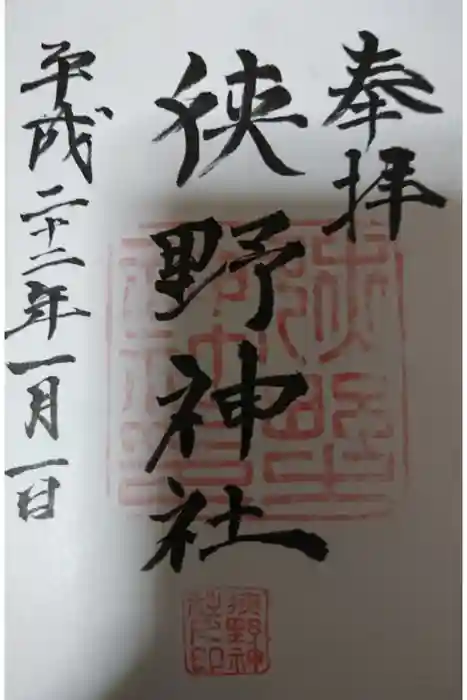 奉拝
狭野神社
平成二十二年一月一日
狭野神
社之印